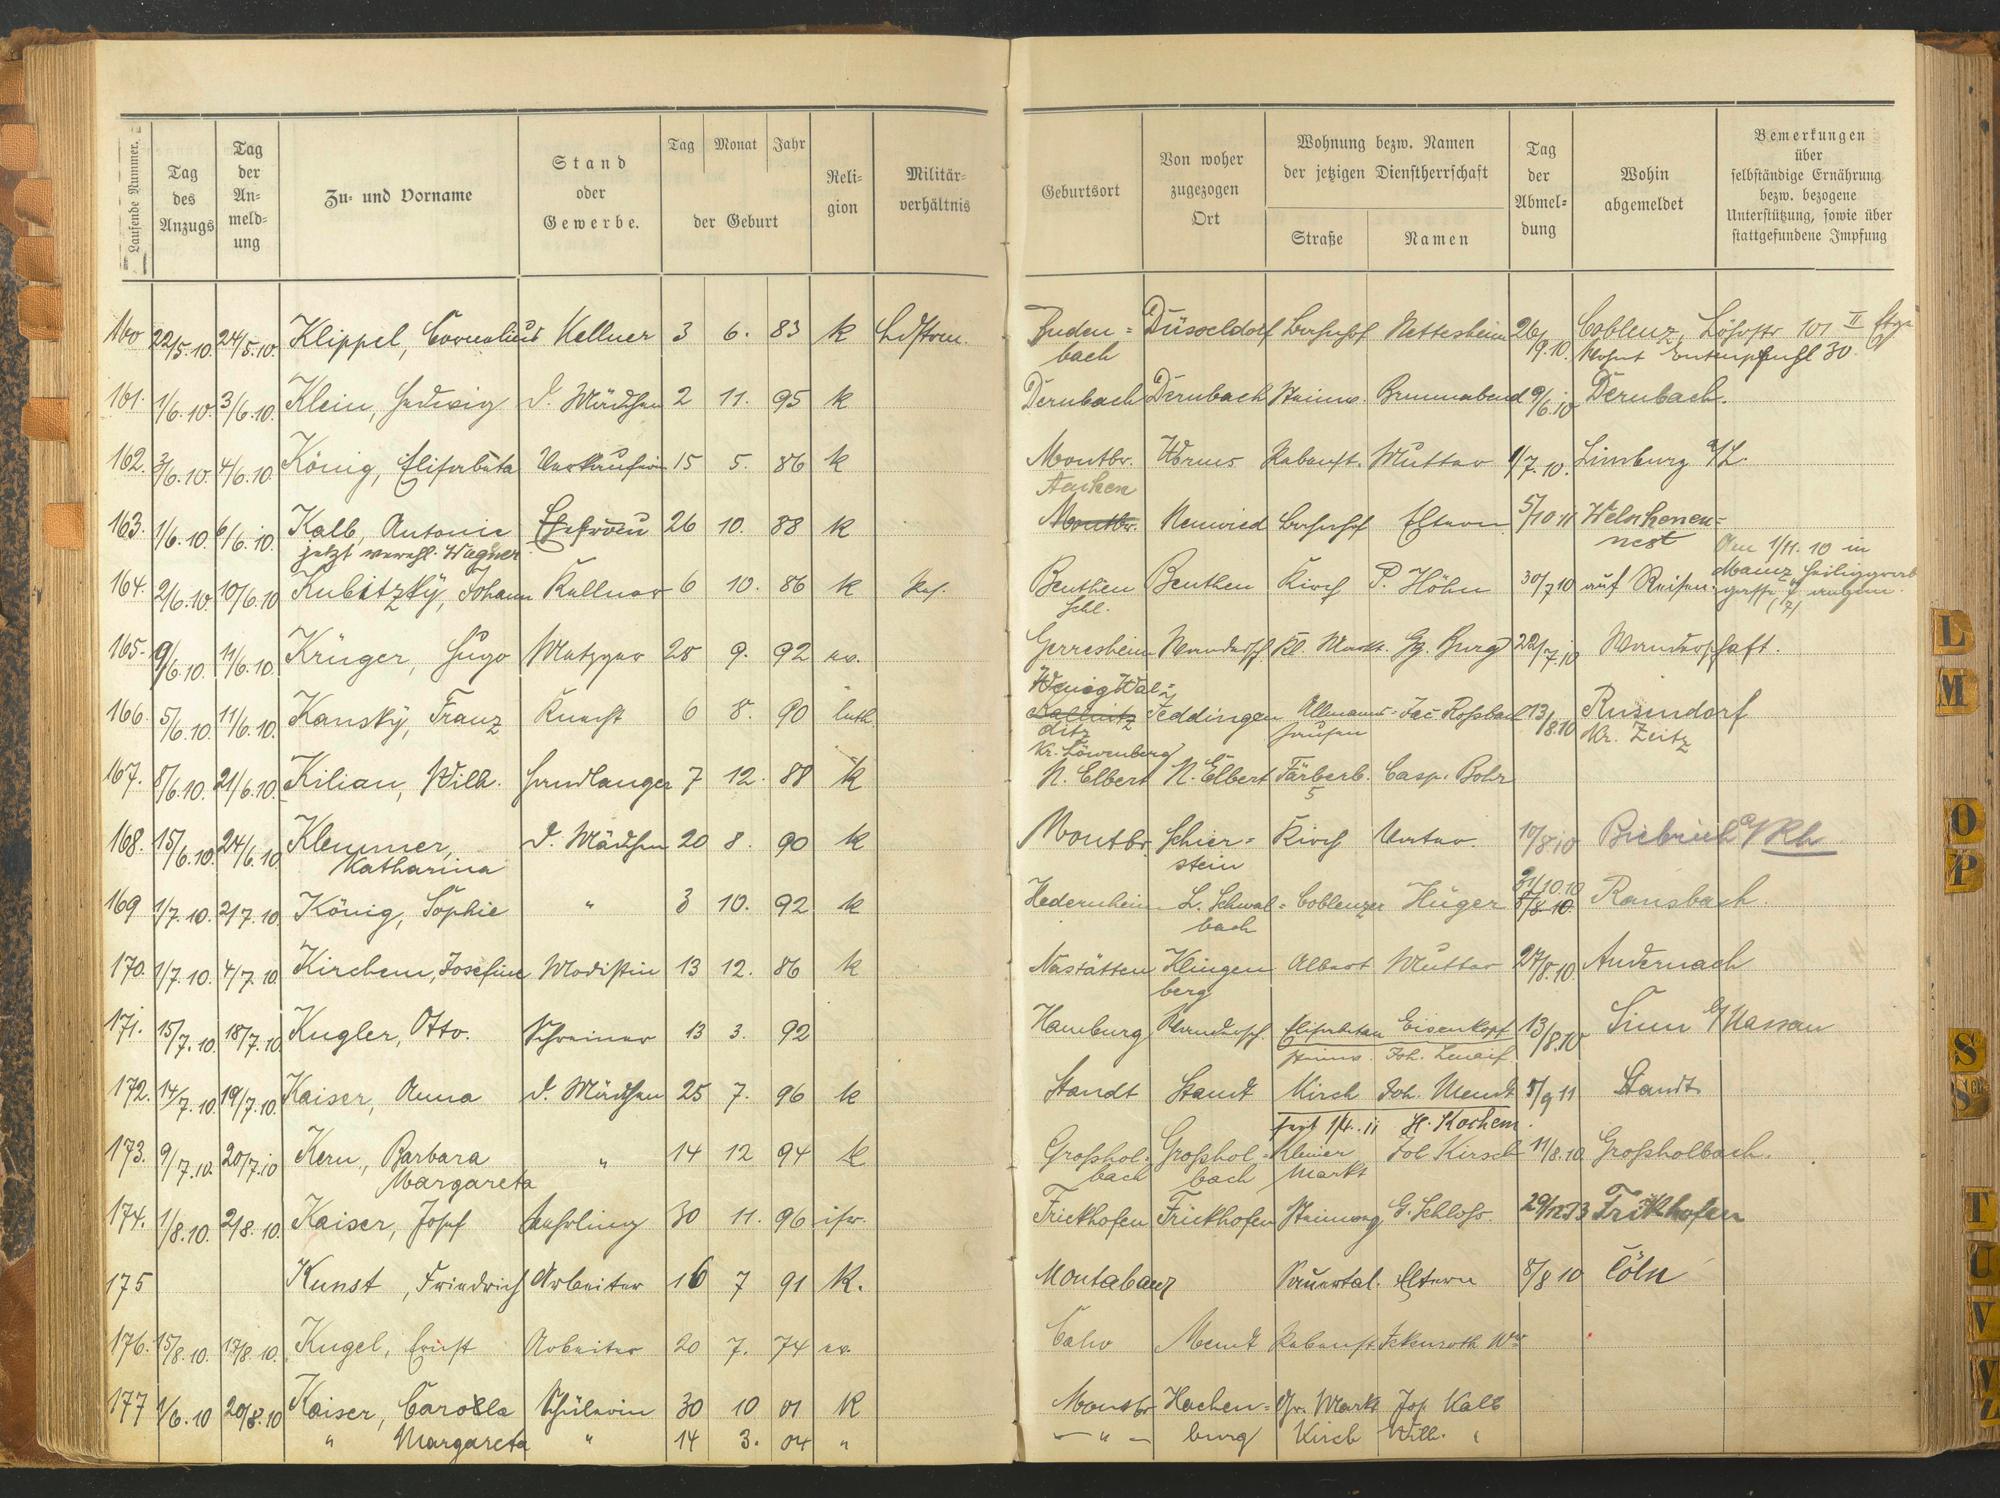 Laufende Nummer.
Tag des Anzugs
Tag der An- meld- ung
Zu- und Vorname
Stand oder Gewerbe.
Tag Monat Jahr
der Geburt
Reli- gion
Militär- verhältnis
Geburtsort
Von woher zugezogen Ort
Wohnung bezw. Namen der jetzigen Dienstherrschaft
Straße
Namen
Tag der Abmel- dung
Wohin abgemeldet
Bemerkungen über selbständige Ernährung bezw. bezogene Unterstützung, sowie über stattgefundene Impfung
160 22/5.10. 24/5.10. Klippel, Cornelius Kellner 3 6. 83 k Ldstrm. Düsseldorf Bahnhof Nettesheim 26/9.10. Coblenz, Löhrstr 101 II Etge
bach wohnt Entenpfuhl 30.
161. 1/6.10. 3/6.10. Klein, Hedwig d. Mädchen 2 11. 95 k Dernbach Dernbach Steinw. Brummabend 9/6.10 Dernbach.
162. 3/6.10. 4/6.10. König, Elisabeta Verkäuferin 15 5. 86 k Montbr. Worms Rebenst. Mutter 1/7.10. Limburg a/L.
Aachen
163. 1/6.10. 6/6.10. Kalb, Antonie Ehefrau 26 10. 88 k Montbr. Neuwied Bahnhof Eltern 5/10 11 Welschenen=
jetzt verehl. Wagner nest
Am 1/11.10 in
164. 2/6.10. 10/6.10 Kubitzky, Johann Kellner 6 10. 86 k Beuthen Beuthen Kirch P. Höhn 30/7 10 auf Reisen. Mainz
Schl.
165. 9/6.10 11/6.10. Krüger, Hugo Metzger 28 9. 92 ev. Gerresheim Kl. Markt. Gg. Burg 22/7.10 Wanderschaft.
WenigWal=
166. 5/6.10. 11/6.10. Kansky, Franz Knecht 6 8. 90 luth. Teddingen Allmanns= Jac Roßbach 13/8.10 Rusendorf
ditz hausen Kr. Zeitz
Kr. Löwenberg
167. 8/6.10. 21/6.10. Kilian, Wilh. Handlanger 7 12. 88 k N. Elbert N. Elbert Färberb. Casp. Bohr
5
168. 15/6.10. 24/6.10 Klemmer, d. Mädchen 20 8. 90 k Montbr. Schier= Kirch Vater. 10/8 10 Biebrich a/Rh
Katharina stein
31/10.10
169 1/7.10. 2/7.10. König, Sophie " 3 10. 92 k Hedernheim L. Schwal= Coblenzer Hüger 8/8.10. Ransbach.
bach
170. 1/7.10. 4/7.10. Kirchem, Josefine Modistin 13 12. 86 k Nastätten Klingen Albert Mutter 27/8.10. Andernach
berg
171. 15/7.10. 18/7.10. Kugler, Otto. Schreiner 13 3. 92 Hamburg Wandersch. Elisabethen Eisenkopf 13/8.10 Sinn b/Nassau
Steinw. Joh.
172. 14/7.10. 19/7.10. Kaiser, Anna d. Mädchen 25 7. 96 k Standt Standt Kirch Joh. Mendt 5/9 11 Standt
jezt 1/4.11 H. Kochem.
173. 9/7.10. 20/7.10 Kern, Barbara " 14 12 94 k Großhol= Großhol= Kleiner Joh Kirsch 11/8.10 Großholbach.
Margareta bach bach Markt
174. 1/8.10. 2/8.10. Kaiser, Josef Lehrling 30 11. 96 isr. Frickhofen Frickhofen Steinweg G. Schloss. 29/12 13 Frickhofen
175 Kunst, Friedrich Arbeiter 16 7 91 K. Montabaur Sauertal. Eltern 8/8 10 Cöln
176. 15/8.10. 17/8.10. Kugel, Ernst Arbeiter 20 7. 74 ev. Calw Mendt Rebenst Ickenroth Wwe
177 1/6.10 20/8.10 Kaiser, Carolla Schülerin 30 10 01 K Montbr Hachen= Gr. Markt Jos. Kalb
" Margareta " 14 3. 04 " — " — burg Kirch Wilh. "
L
M
O
P
S
Sch
T
U
V
W
Z